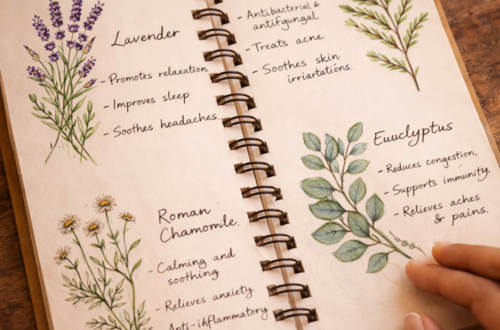 Lavender
- Promotes relaxation
- Improves sleep
- Soothes headaches.
Roman
Chamomile.
- Calming and
soothing
- Relieves anxiety.
Anti-inflammatory
- Antibacterial &
antifungal.
- Treats acne.
- Soothes skin
irriartations.
Euuclyptus
- Reduces congestion,
- Supports immunity.
- Relieves aches
& pains.